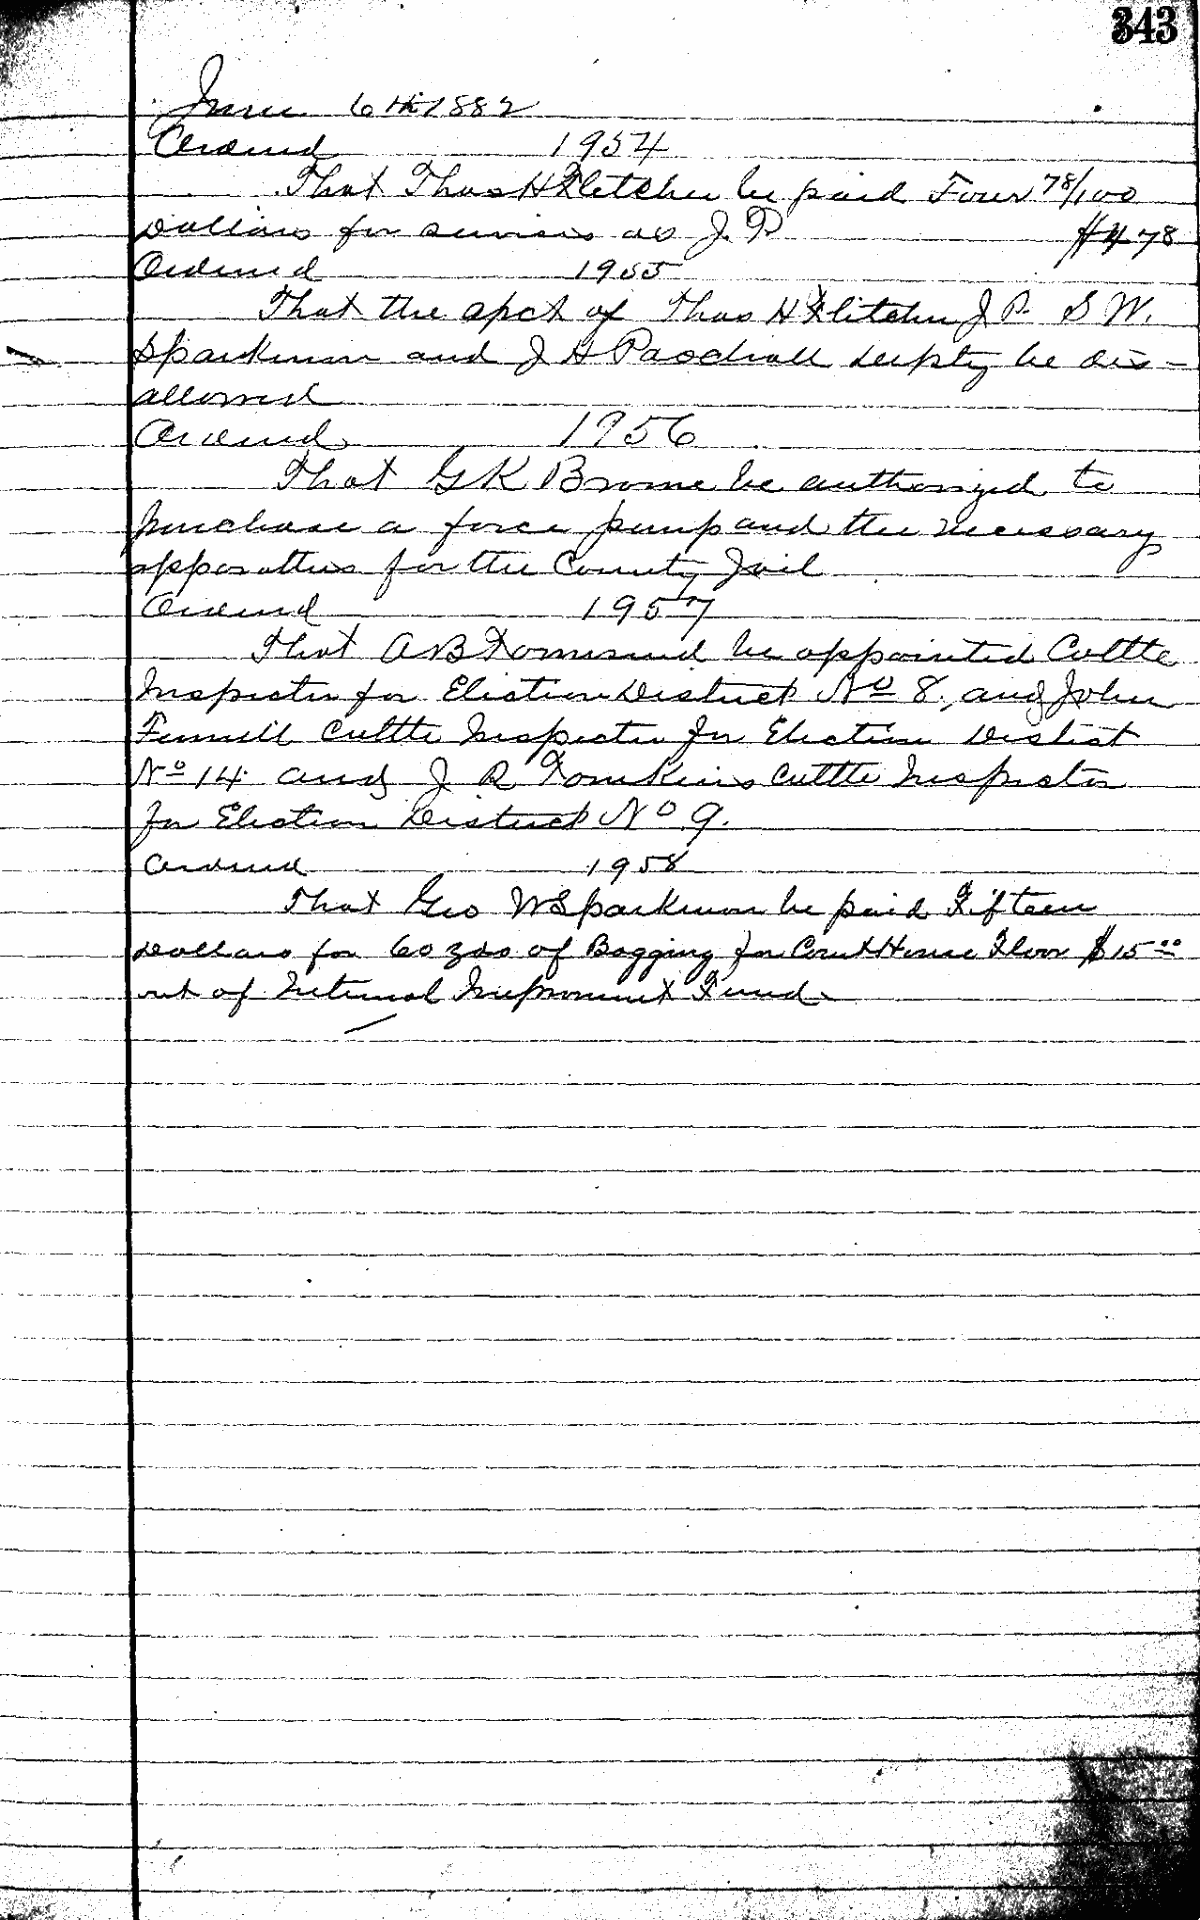 343
June 6th 1882
Ordered 1954
That Thos H Fletcher be paid Four 78/100
Dollars for services as J. P. $4 78
Ordered 1955
That the apct of Thos H Fletcher J P. S W.
Sparkman and J H Paschall deupty be dis-
allowed
Ordered 1956
That G K Brome be authorized to
purchase a force pump and the necessary
apparattus for the County Jail
Ordered 1957
That A B be appointed Cattle
Inspector for Election District No 8, and John
Fennell Cattle Inspector for Election District
No 14 and J R Tomkins Cattle Inspector
for Election District No 9.
Ordered 1958
That Geo W Sparkman be paid Fifteen
Dollars for 60 yds of Bagging for Court House Floor $15 00
out of Internal Improvment Fund